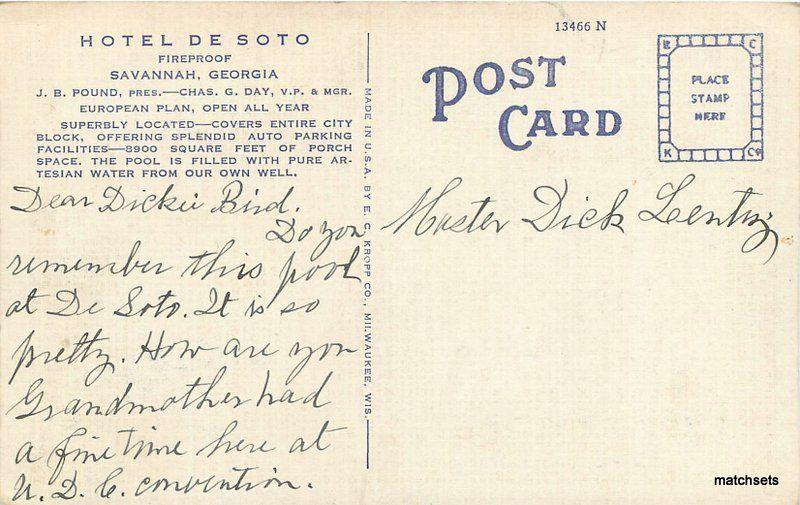 HOTEL DE SOTO
FIREPROOF
SAVANNAH, GEORGIA
J. B. POUND, PRES.—CHAS. G. DAY, V.P. & MGR.
EUROPEAN PLAN, OPEN ALL YEAR
SUPERBLY LOCATED—COVERS ENTIRE CITY
BLOCK, OFFERING SPLENDID AUTO PARKING
FACILITIES—8900 SQUARE FEET OF PORCH
SPACE. THE POOL IS FILLED WITH PURE AR-
TESIAN WATER FROM OUR OWN WELL.
Dear Dickie Bird.
Do you
remember this pool
at De Soto. It is so
pretty. How are you
Grandmother had
a fine time here at
U. D. C. convention.
MADE IN U.S.A. BY E. C. KROPP CO., MILWAUKEE, WIS.
13466 N
POST
CARD
E C
PLACE
STAMP
HERE
K Co
Master Dick Lentz
matchsets